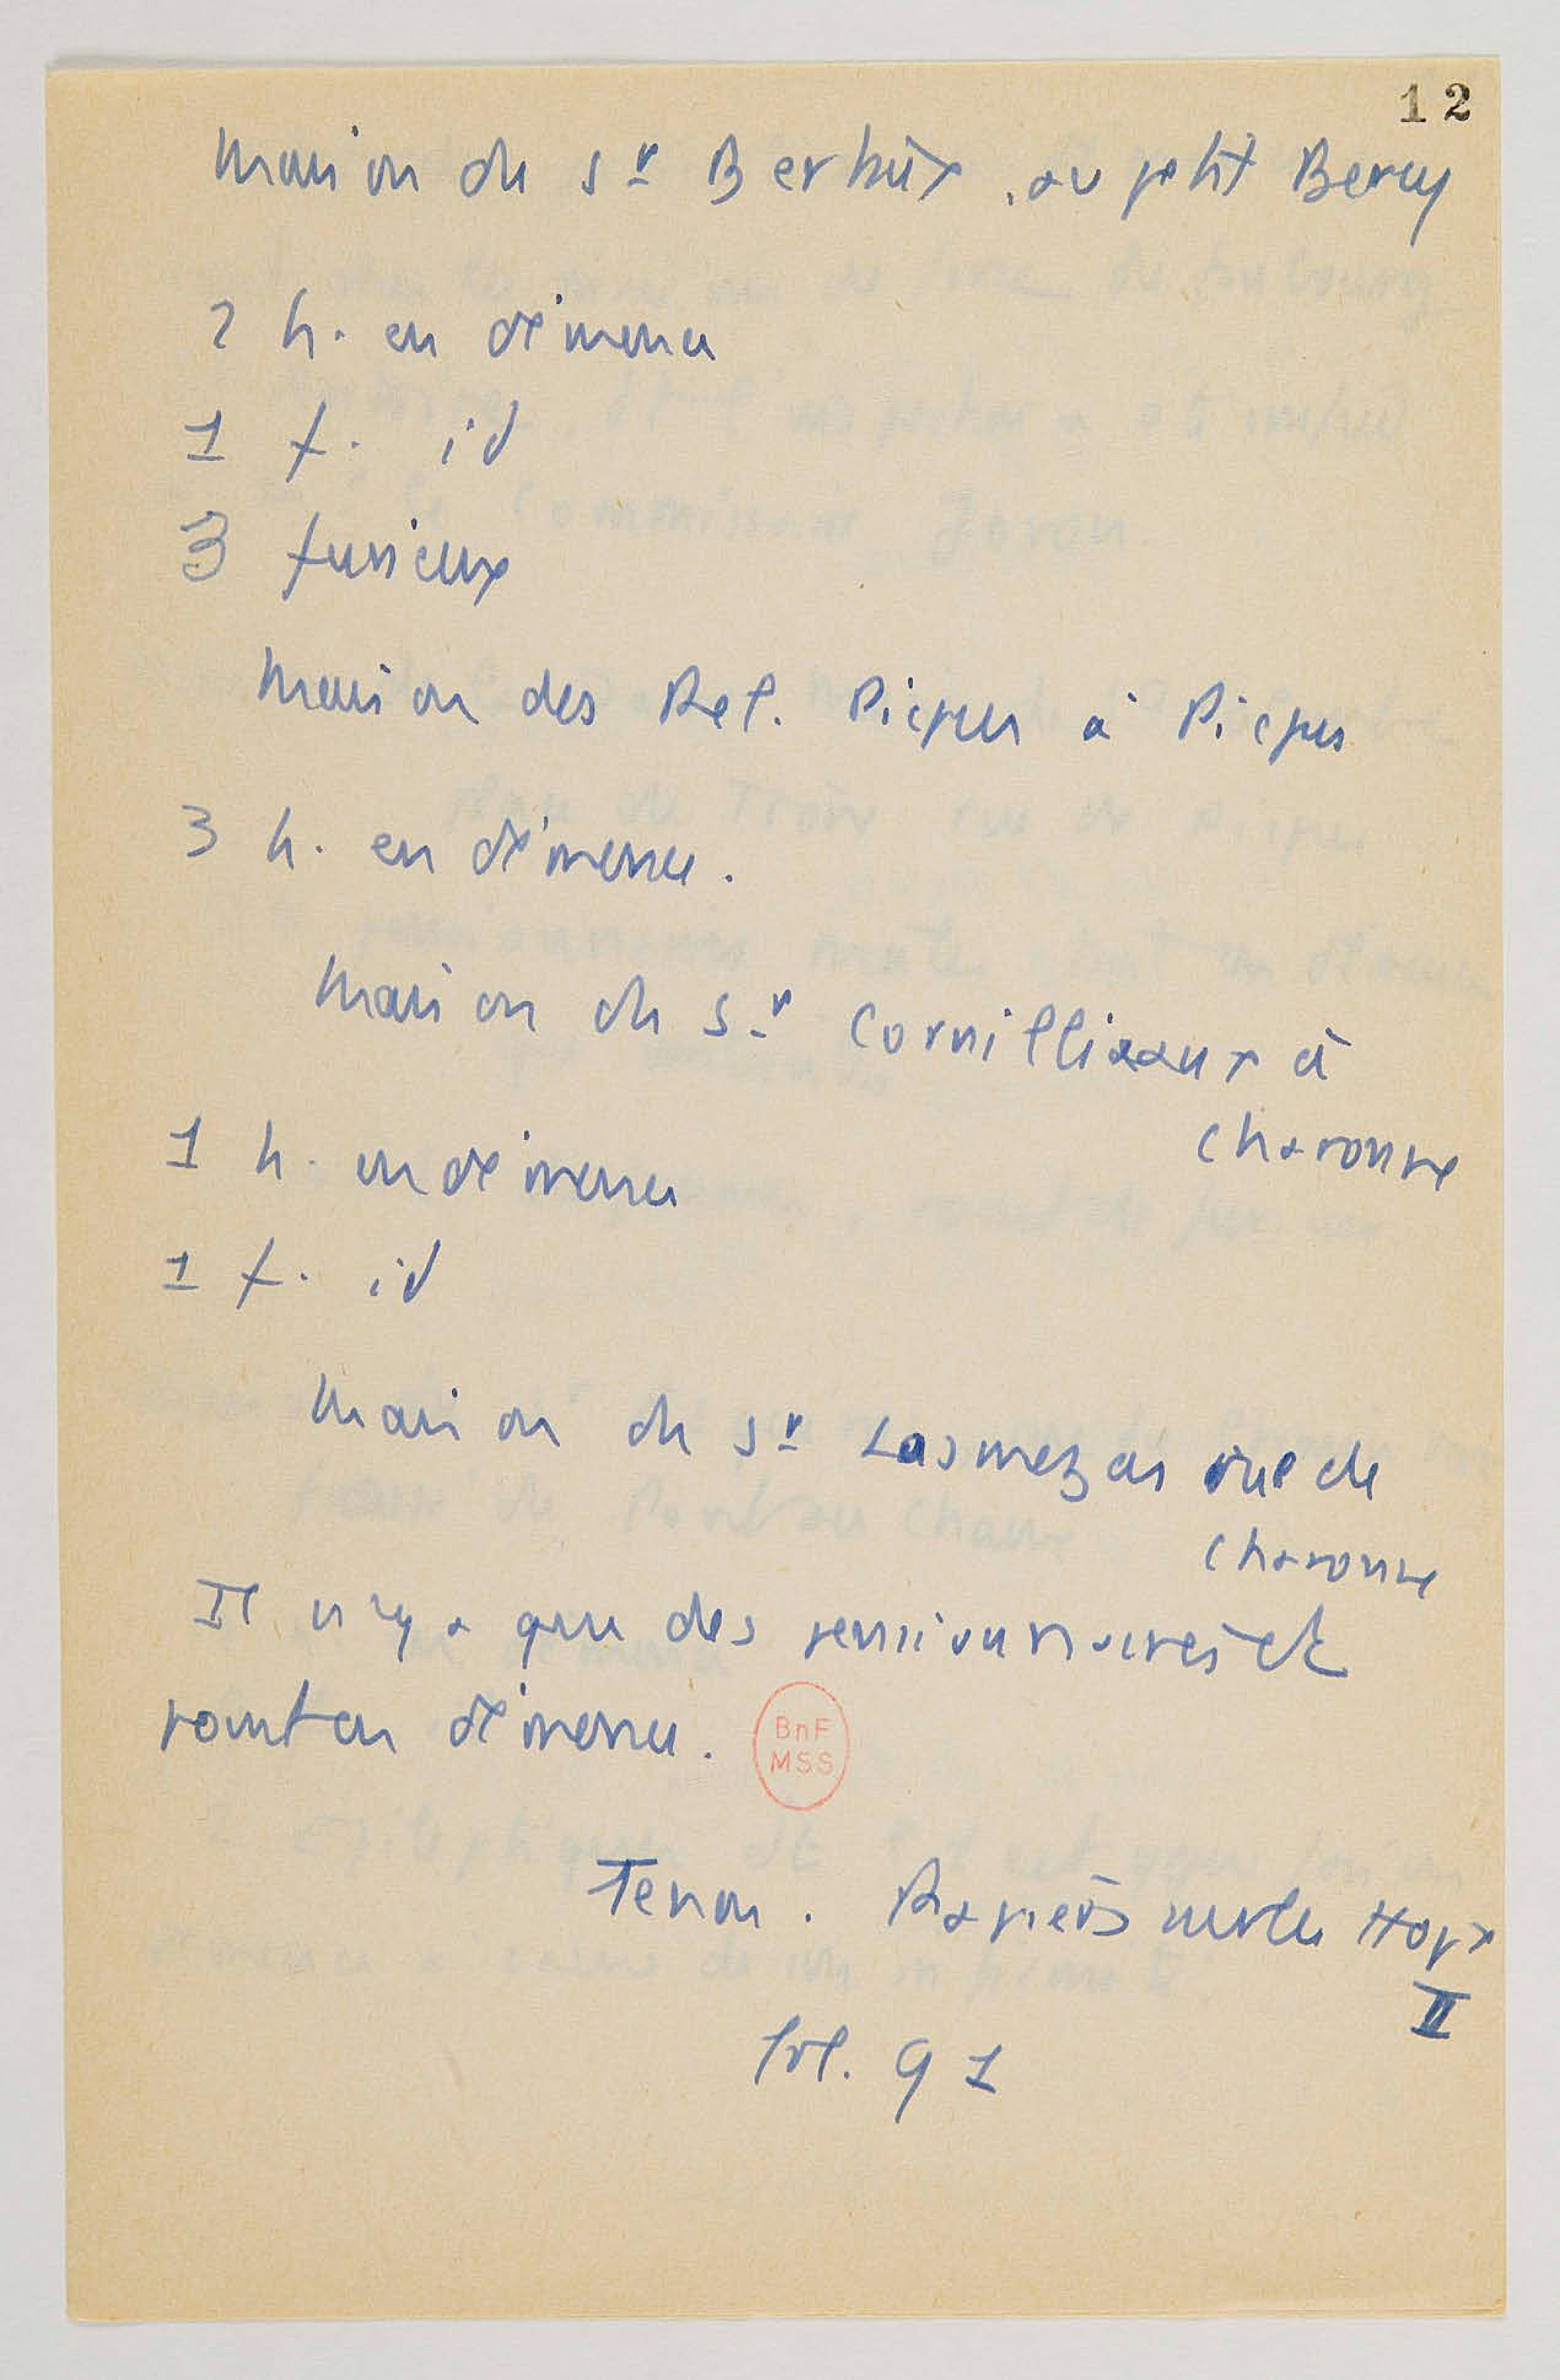 12
Maison du Sr Bertaux, au petit Bercy
2 h. en démence
1 f. id
3 furieux
Maison des Rel. Picpus à Picpus
3 h. en démence.
Maison du Sr Cornilliaux à
Charonne
1 h. en démence
1 f. id
Maison du Sr Lasmezas rue de
Charonne
Il n'y a que des pensionnaires et
point en démence.
BnF
MSS
Tenon. Papiers sur les Hopx
II
fol. 91